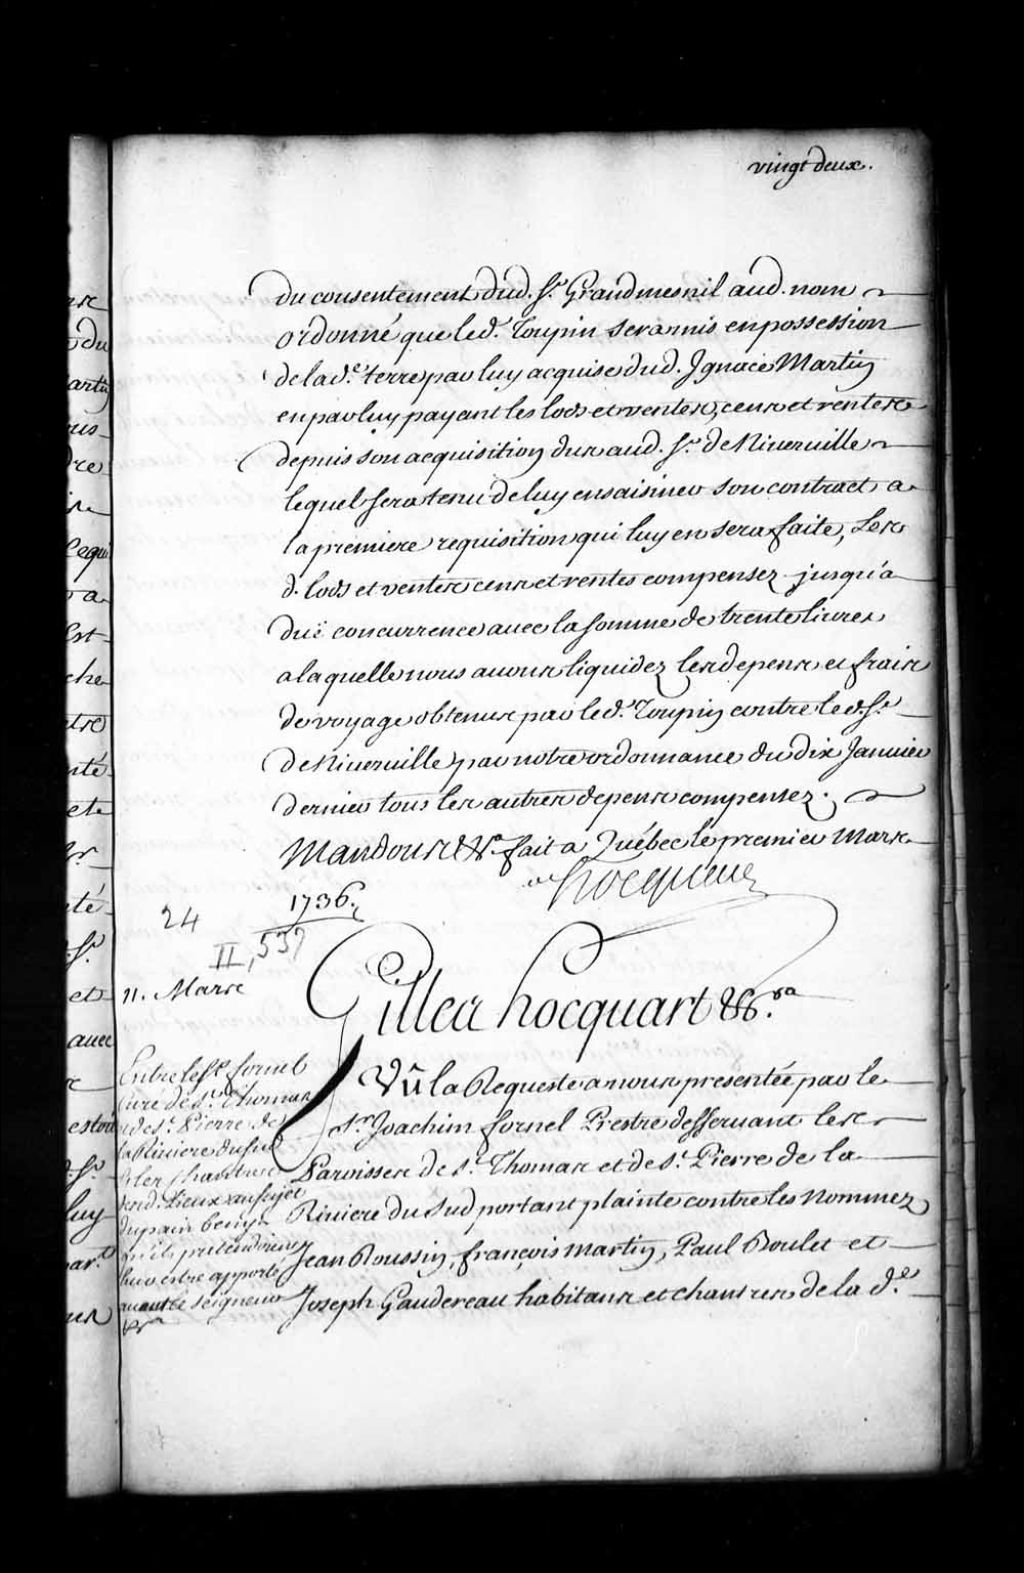 vingt deux.
du consentement dud. Sr. Grandmesnil aud. nom
ordonné que led. Toupin sera mis en possession
de lad.e terre par luy acquise dud. Ignace Martin
en par luy payant les lods et ventes, cens et rentes
depuis son acquisition dus aud. Sr. de Niverville
lequel sera tenu de luy ensaisiner son contract a
la premiere requisition qui luy en sera faite, Les
d. lods et ventes cens et rentes compensez jusqu'a
duë concurrence avec la somme de trente livres
a laquelle nous avons liquidez les depens et frais
de voyage obtenus par led. Toupin contre led. Sr.
de Niverville par notre ordonnance du dix Janvier
dernier tous les autres depens compensez.
Mandons &c. fait a Québec le premier Mars
1736.
hocquart
24
II, 537
11. Mars
Gilles hocquart &c.ra
Entre le Sr. fornel
Curé de St. Thomas
et de St. Pierre de
la Riviere du Sud
et les habitans
desd. Lieux au sujet
du pain beny
qu'ils pretendoient
luy estre apporté
avant le seigneur
&ra
Vû la Requeste a nous presentée par le
Sr. Joachim fornel Prestre desservant les
Paroisses de St. Thomas et de St. Pierre de la
Riviere du Sud portant plainte contre les nommez
Jean Boussin, françois Martin, Paul Boulet et
Joseph Gaudereau habitans et chantres de la d.e